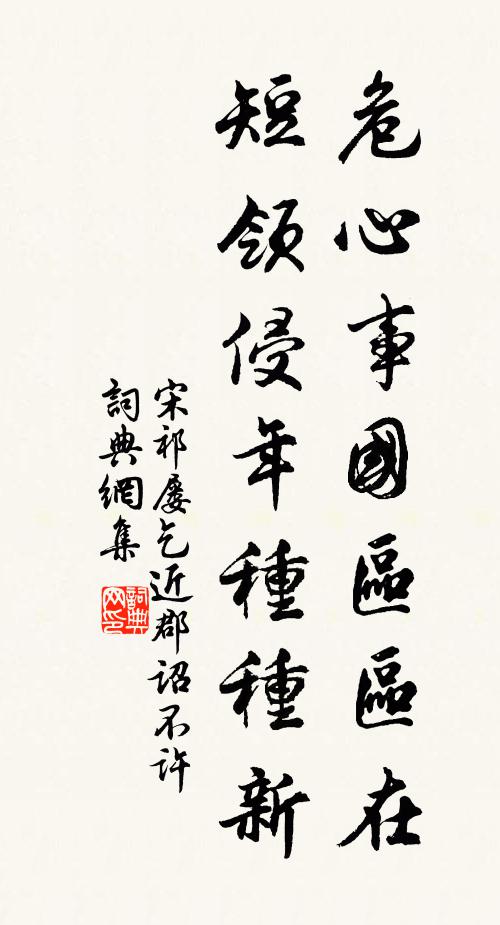 危心事國區區在
短領侵年種種新
宋祁屢乞近郡詔不許
詞典網集
詞典网印